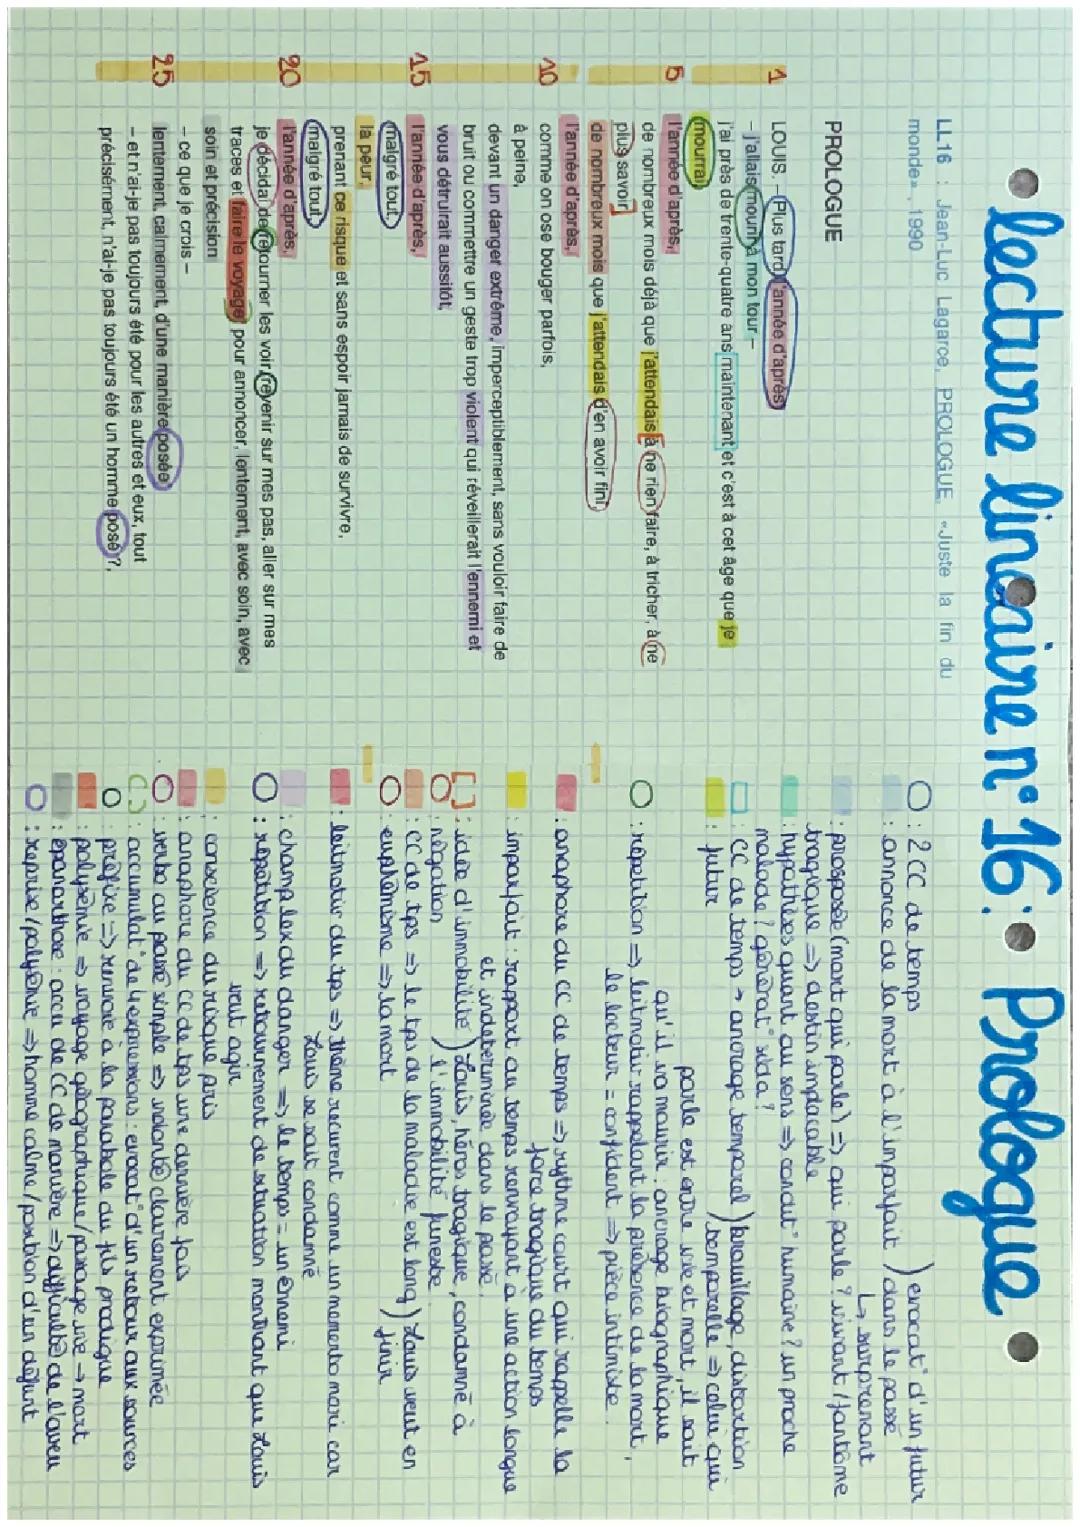 • lecture linéaire n°16: • Prologue •
LL16 : Jean-Luc Lagarce, PROLOGUE, «Juste la fin du
monde», 1990
PROLOGUE
1
LOUIS. – Plus tard, l'année d'après
– j'allais mourir à mon tour –
j'ai près de trente-quatre ans maintenant et c'est à cet âge que je
mourrai,
5
l'année d'après,
de nombreux mois déjà que j'attendais à ne rien faire, à tricher, à ne
plus savoir,
de nombreux mois que j'attendais d'en avoir fini,
l'année d'après,
10
comme on ose bouger parfois,
à peine,
devant un danger extrême, imperceptiblement, sans vouloir faire de
bruit ou commettre un geste trop violent qui réveillerait l'ennemi et
vous détruirait aussitôt,
15
l'année d'après,
malgré tout,
la peur,
prenant ce risque et sans espoir jamais de survivre,
malgré tout,
20
l'année d'après,
je décidai de retourner les voir, revenir sur mes pas, aller sur mes
traces et faire le voyage, pour annoncer, lentement, avec soin, avec
soin et précision
– ce que je crois –
25
lentement, calmement, d'une manière posée
– et n'ai-je pas toujours été pour les autres et eux, tout
précisément, n'ai-je pas toujours été un homme posé ?,
: 2 CC de temps ) evocat° d'un futur
: annonce de la mort à l'imparfait ) dans le passé
↳ surprenant
: prosposée (mort qui parle) => qui parle ? vivant / fantôme
tragique => destin implacable
: hypothèses quant au sens => condit° humaine ? un proche
malade ? générat° sida ?
: CC de temps → ancrage temporel ) brouillage, distortion
: futur ) temporelle => celui qui
parle est entre vie et mort, il sait
qu'il va mourir : ancrage biographique
: répetition => leitmotiv rappelant la présence de la mort,
le lecteur = confident => pièce intimiste.
: anaphore du CC de temps => rythme court qui rapelle la
force tragique du temps
: imparfait : rapport au temps renvoyant à une action longue
et indeterminée dans le passé.
[] : idée d'immobilité ) Louis, héros tragique, condamné à
: négation ) l'immobilité funeste.
: CC de tps => le tps de la maladie est long ) Louis veut en
: euphémisme => la mort ) finir
: leitmotiv du tps => thème récurent comme un memento mori car
Louis se sait condamné
: champ lex du danger => le temps = un ennemi
: répétition => retournement de situation montrant que Louis
veut agir
: conscience du risque pris
: anaphore du CC de tps une dernière fois
: verbe au passé simple => volonté clairement exprimée
: accumulat° de 4 expressions : evocat° d'un retour aux sources
: préfixe => renvoie à la parabole du fils prodigue
: polysémie => voyage géographique / passage vie → mort
: epanorthose : accu de CC de manière => difficulté de l'aveu
: reprise / polysémie => homme calme / position d'un défunt